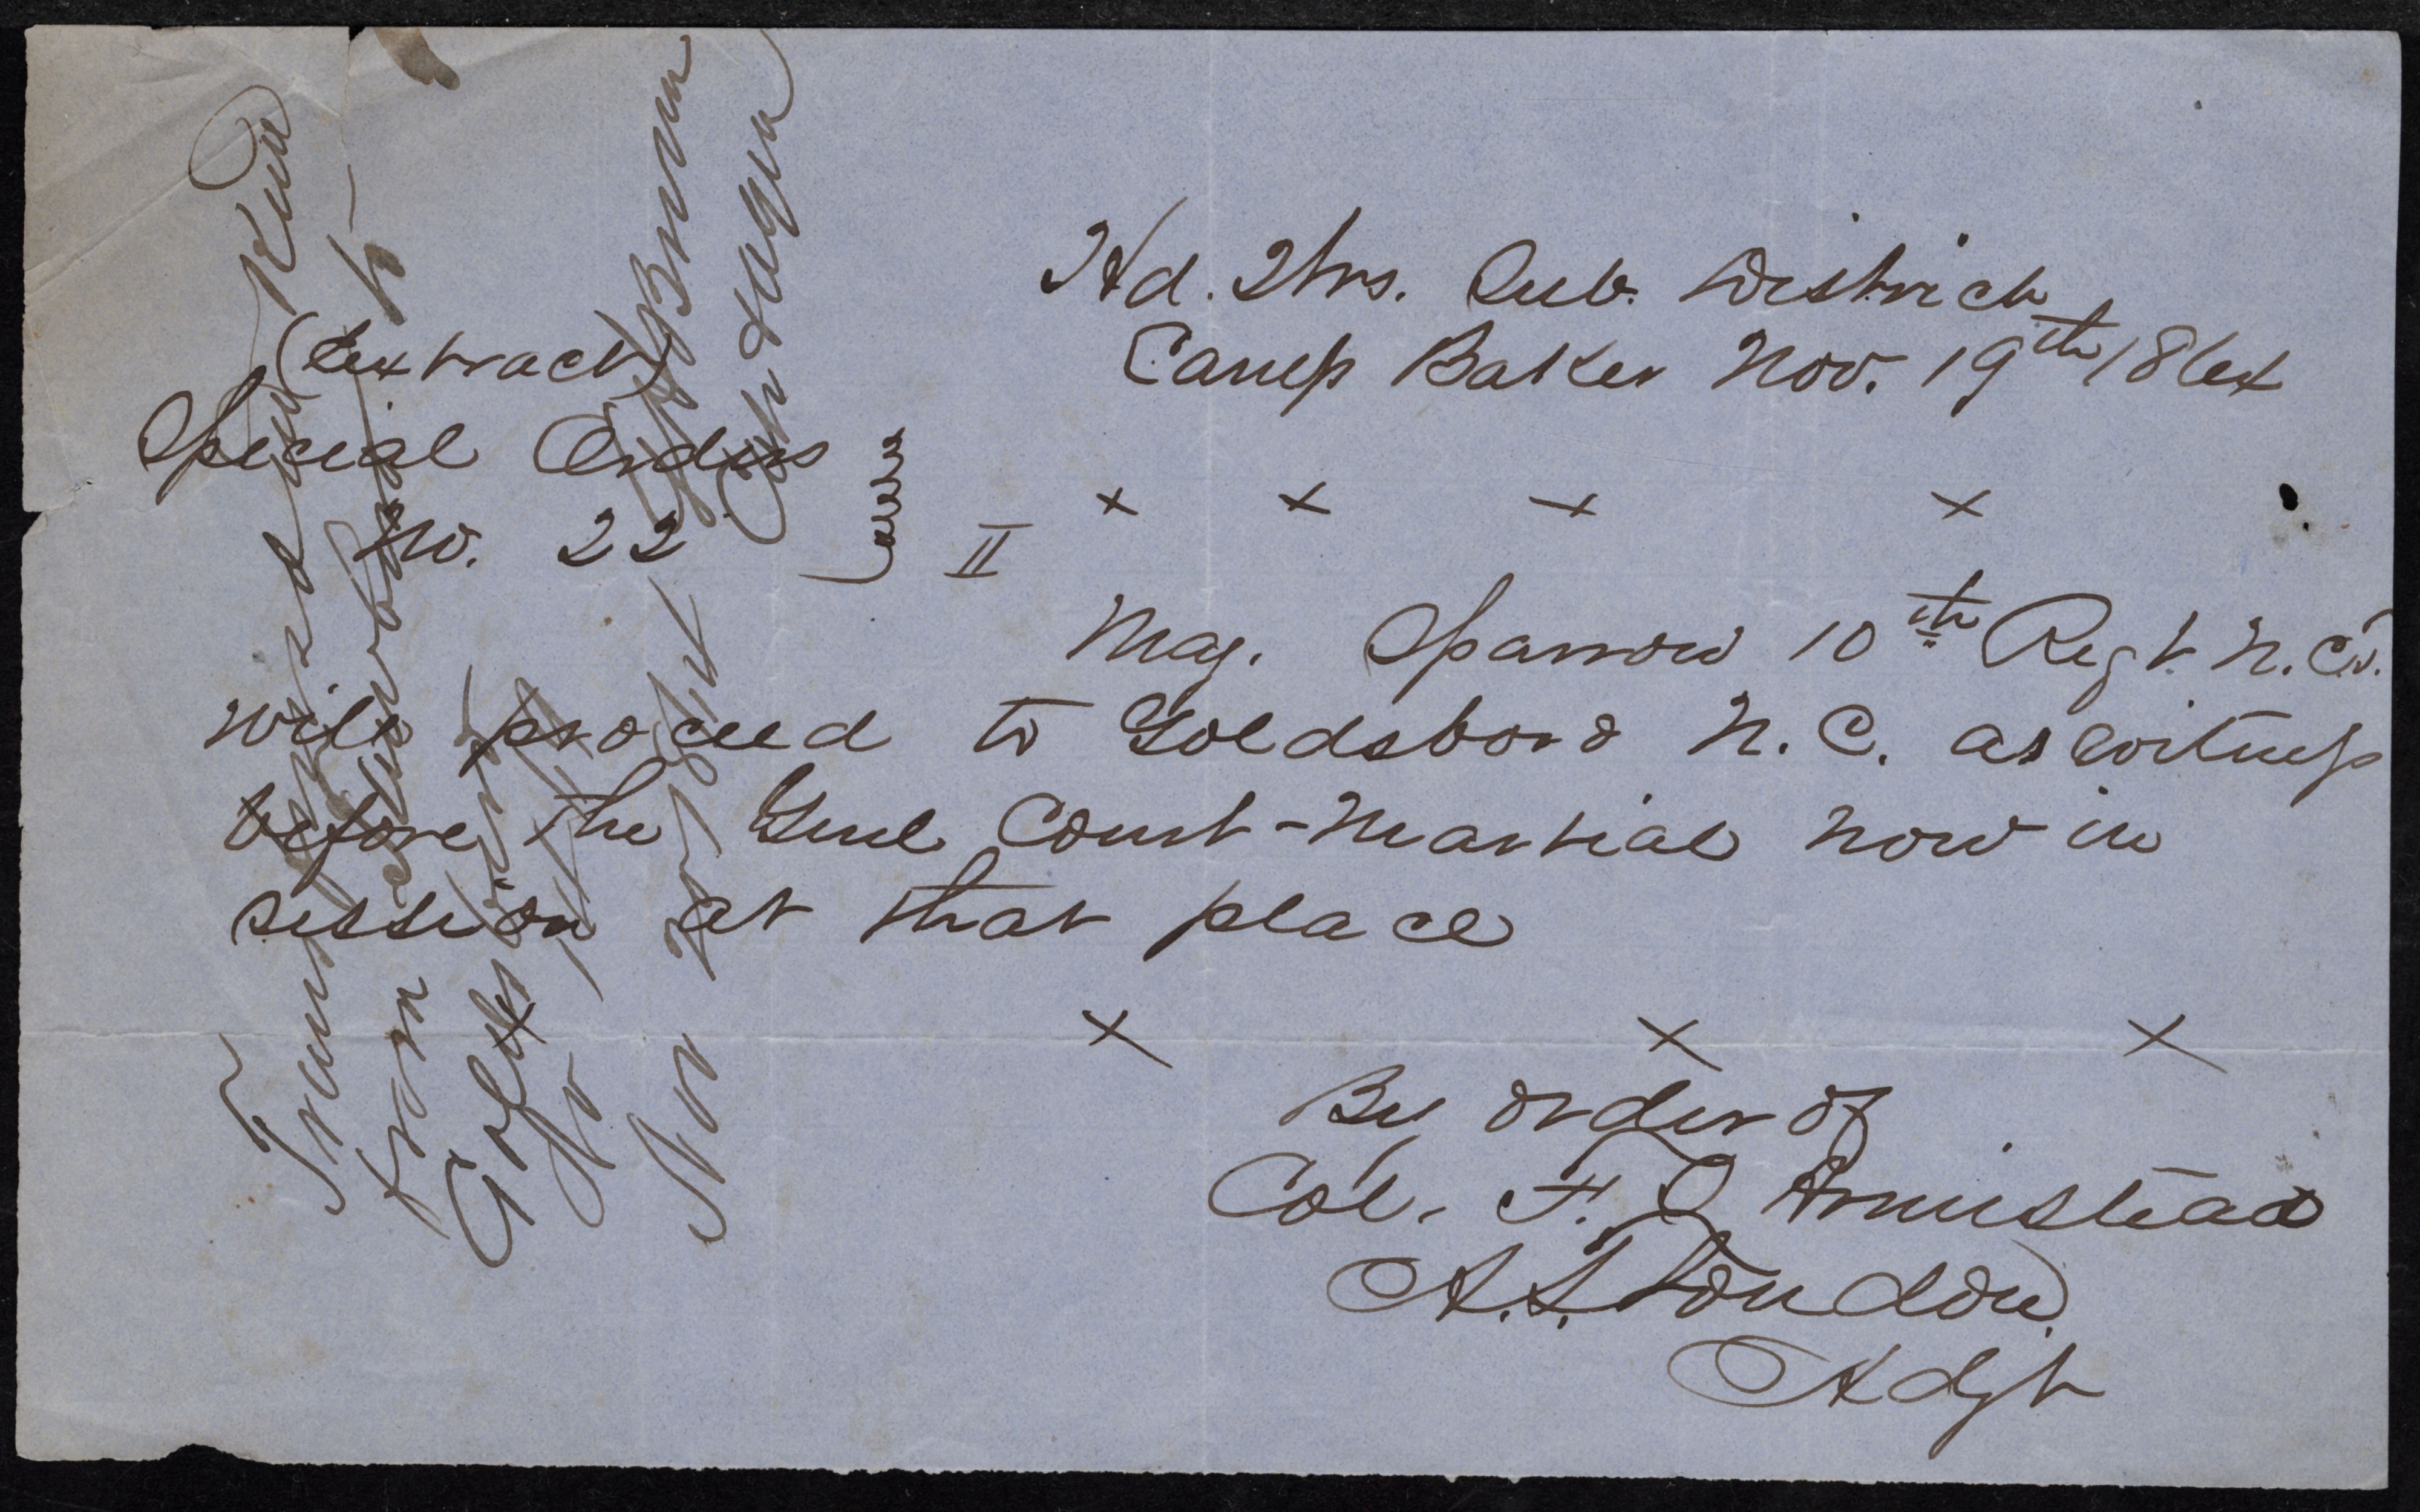 Hd. Qtrs. Sub. District
Camp Baker Nov. 19th 1864
(Extract)
Special Orders
No. 22
II
x x x x
Maj. Sparrow 10th Regt. N.C.
will proceed to Goldsboro N.C. as witness
before the Genl Court-Martial now in
session at that place
x x x
By order of
Col. F. J Armistead
A. J. London.
Adjt
Transportation
from
to
Nov 20/64
Capt & aqm